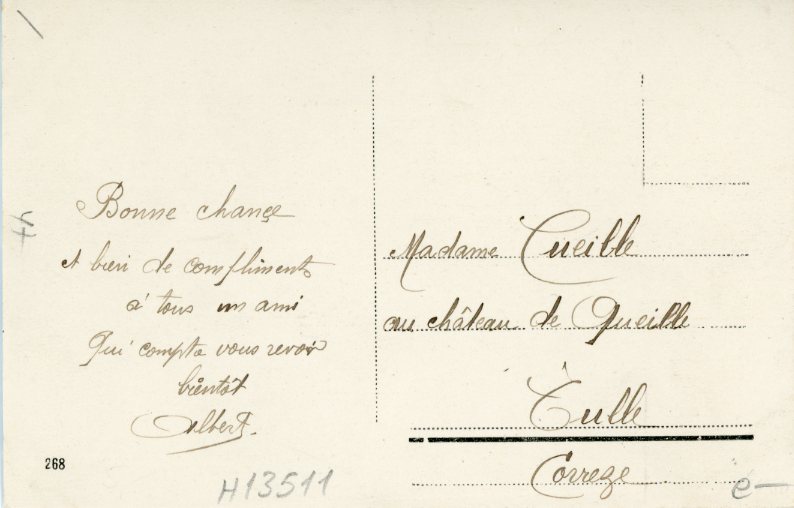 Bonne chançe
et bien de compliments
à tous un ami
qui compte vous revoir
bientôt
Albert.
268
H13511
Madame Cueille
au château de Queille
Tulle
Correze
e-